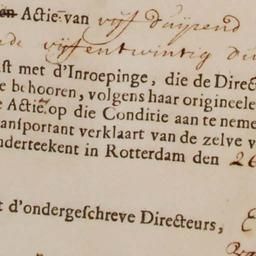 en Actie van vijf Duijzend
de vijfentwintig Du
ſt met d'Inroepinge, die de Direct
e behooren, volgens haar origineele
e Actie op die Conditie aan te neme
anſportant verklaart van de zelve v
nderteekent in Rotterdam den 26
t d'ondergeſchreve Directeurs,